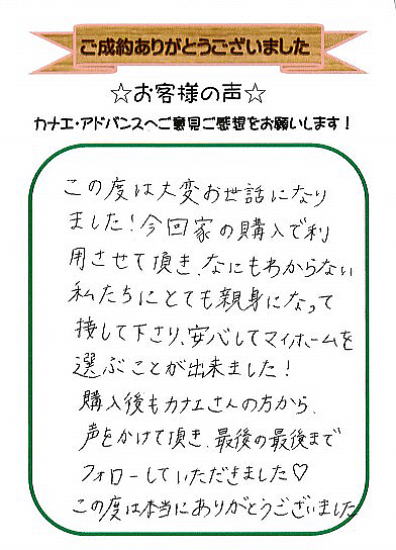 ご成約ありがとうございました
☆お客様の声☆
カナエ・アドバンスへご意見ご感想をお願いします！
この度は大変お世話になり
ました！今回家の購入で利
用させて頂き、なにもわからない
私たちにとても親身になって
接して下さり、安心してマイホームを
選ぶことが出来ました！
購入後もカナエさんの方から、
声をかけて頂き、最後の最後まで
フォローしていただきました♡
この度は本当にありがとうございました